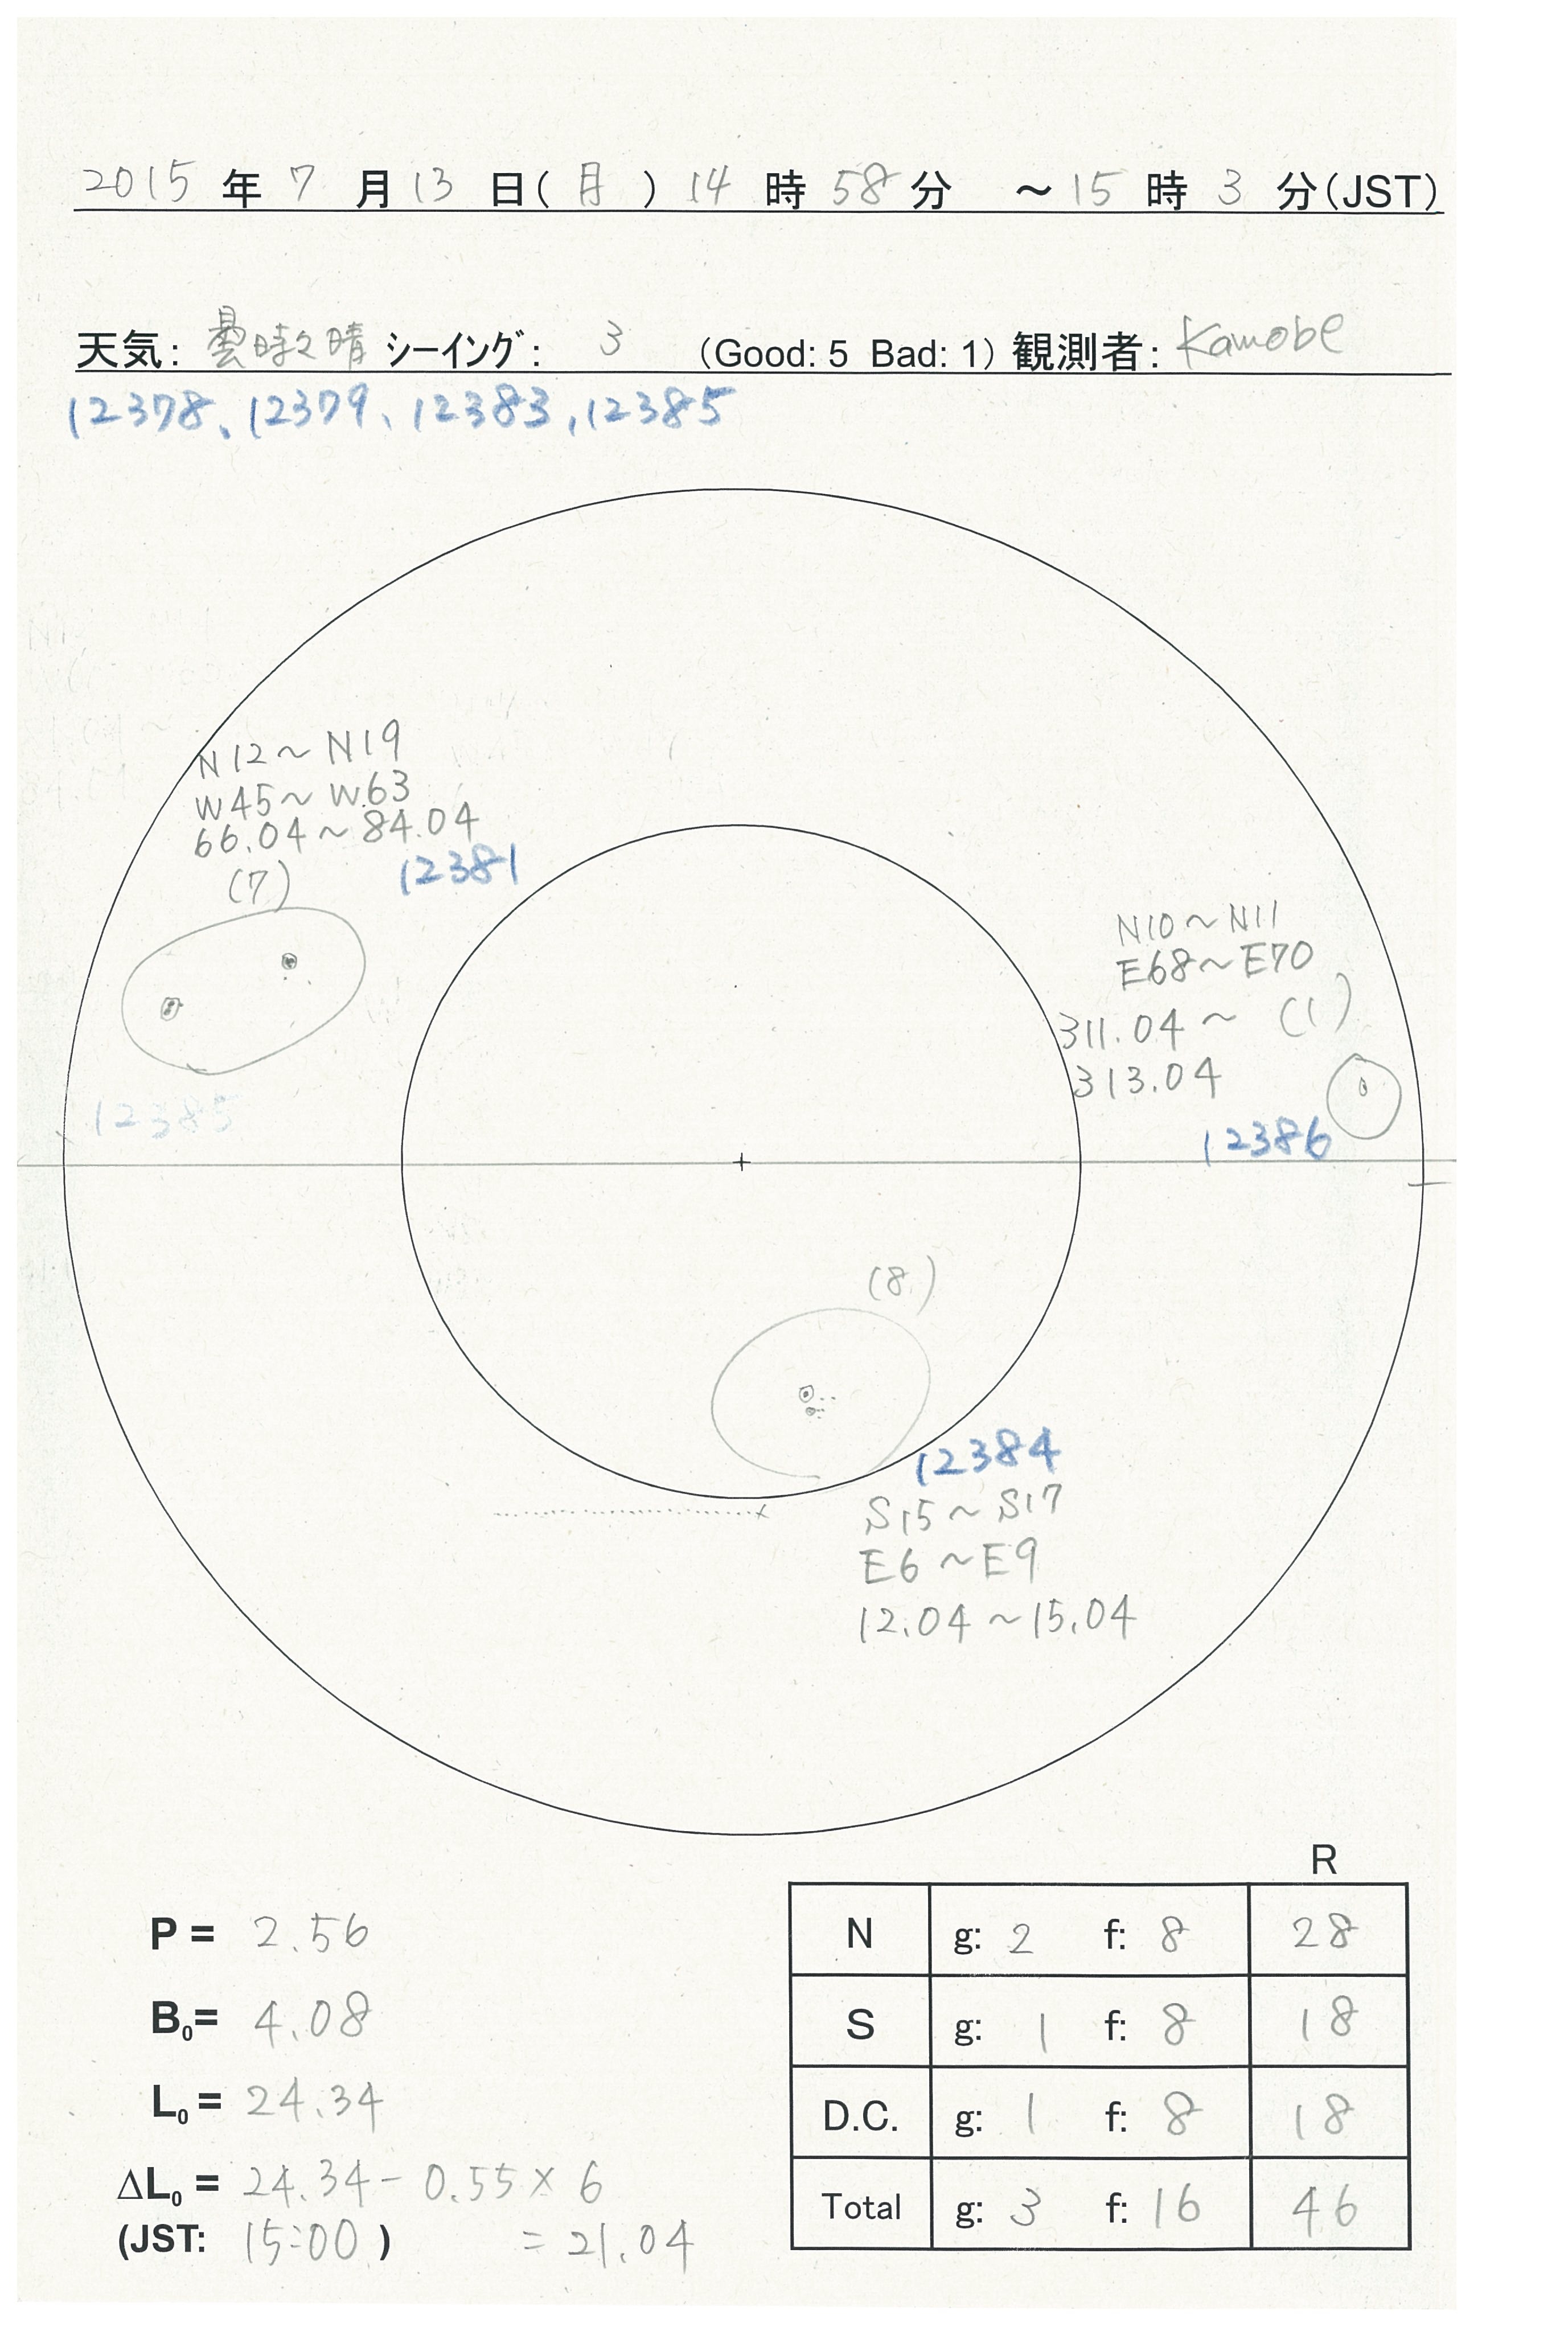 2015 年 7 月 13 日(月) 14 時 58 分 ～15 時 3 分(JST)
天気: 曇時々晴 シーイング: 3 (Good: 5 Bad: 1) 観測者: Kamobe
12378、12379、12383,12385
N12～N19
W45～W63
66.04～84.04
(7)
12381
N10～N11
E68～E70
311.04～ (1)
313.04
12385
12386
(8)
12384
S15～S17
E6～E9
12.04～15.04
R
N g: 2 f: 8 28
S g: 1 f: 8 18
D.C. g: 1 f: 8 18
Total g: 3 f: 16 46
P= 2.56
B₀= 4.08
L₀= 24.34
ΔL₀= 24.34-0.55×6
(JST: 15:00) =21.04